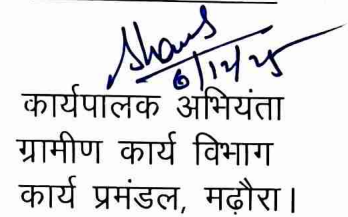 6/12/25
कार्यपालक अभियंता
ग्रामीण कार्य विभाग
कार्य प्रमंडल, मढ़ौरा।